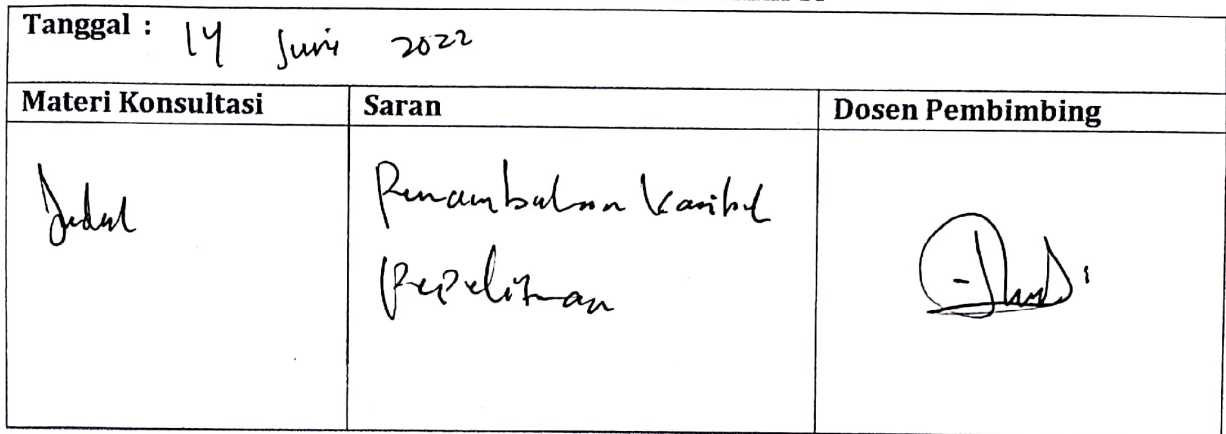 Tanggal : 14 Juni 2022
Materi Konsultasi Saran Dosen Pembimbing
Judul Penambahan Variabel
Penelitian